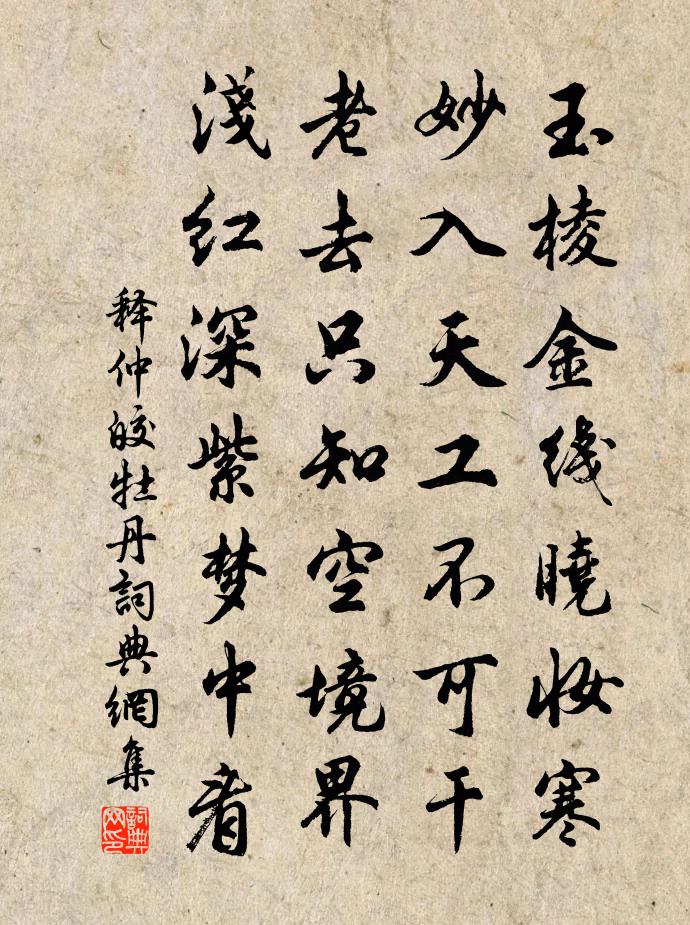 玉棱金线曉妆寒
妙入天工不可干
老去只知空境界
淺红深紫梦中看
释仲皎牡丹詞典網集
詞典网印